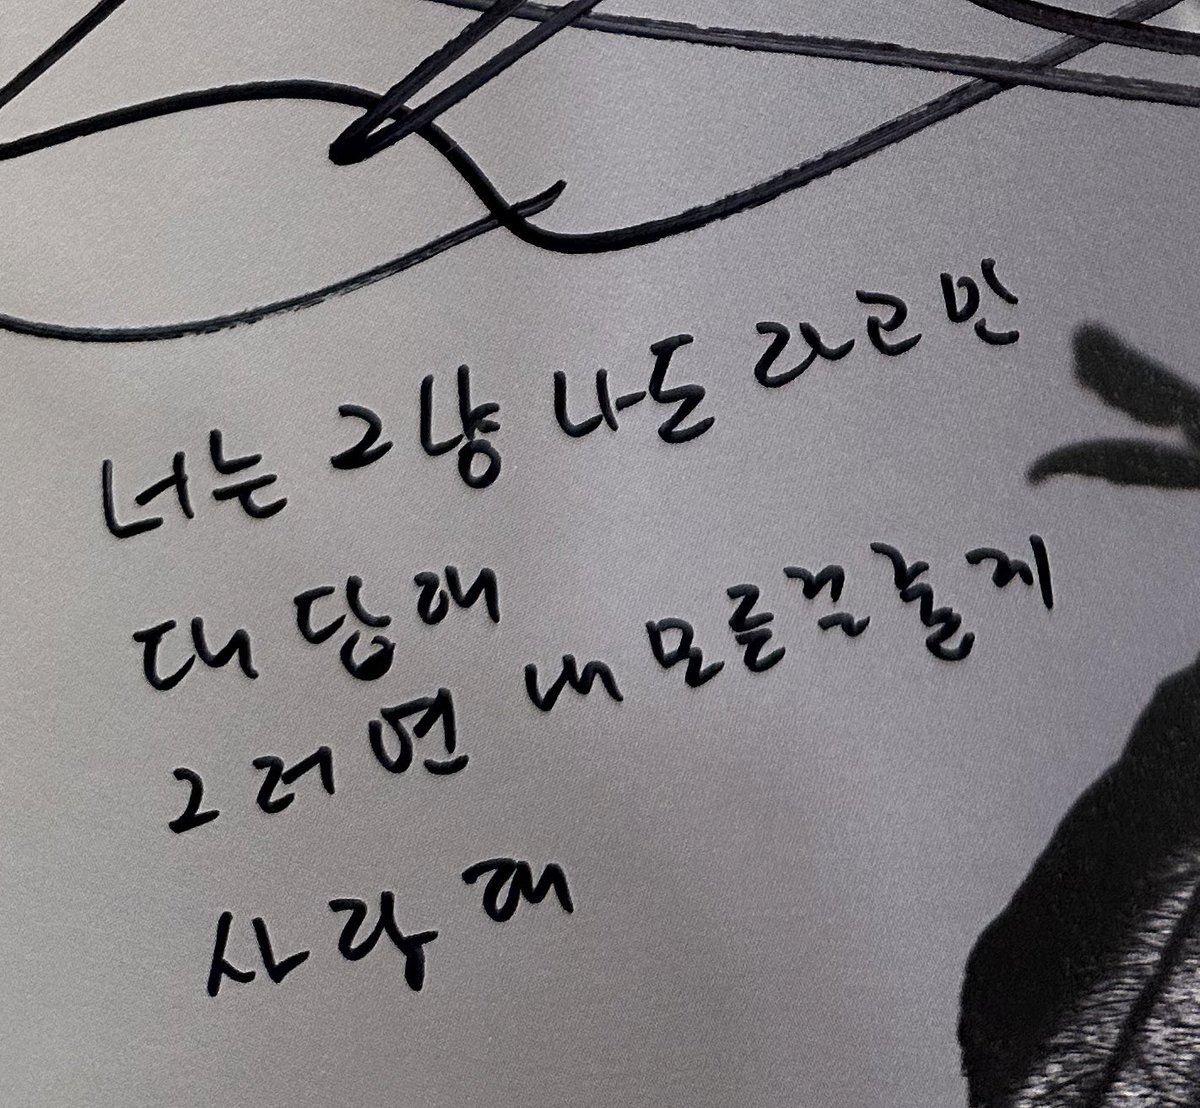 너는 그냥 나도 라고만
대답해
그러면 내 모든걸 줄게
사랑해